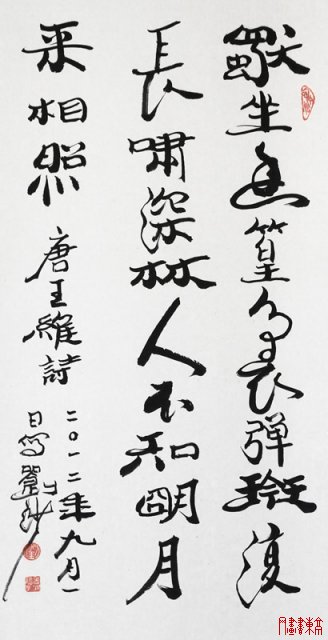 獨坐幽篁裏彈琴復
長嘯深林人不知明月
來相照
唐王維詩
二〇一二年九月一
日寫劉